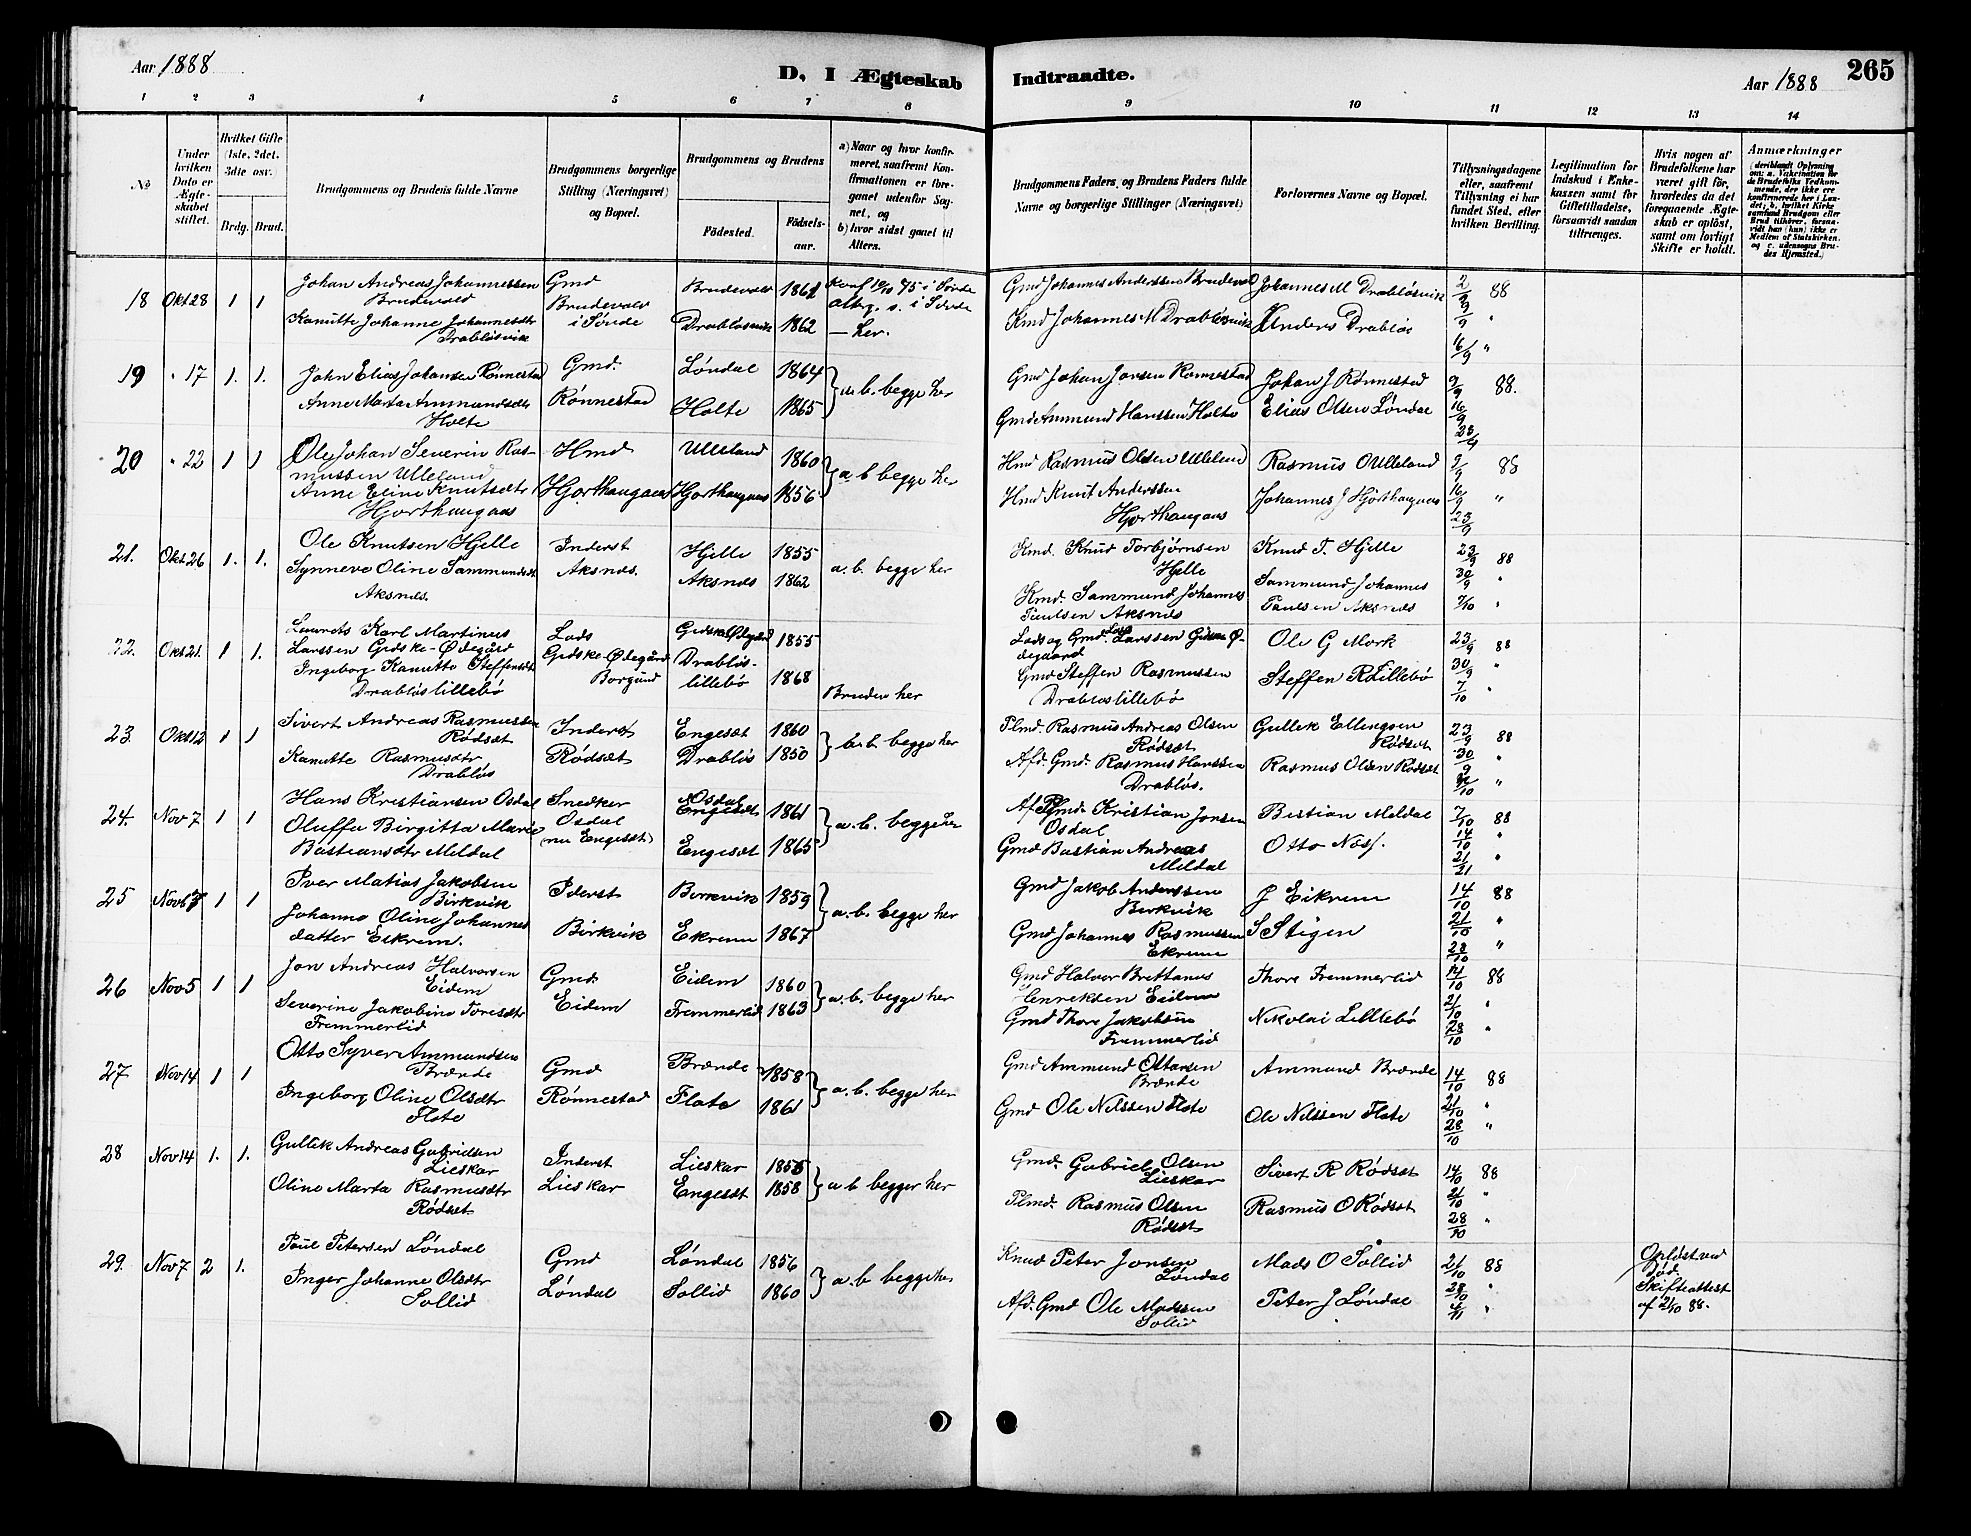 Aar 1888
D, I Ægteskab
Indtraadte.
Aar 1888
265
1 2 3 4 5 6 7 8
9 10 11 12 13 14
No
Under hvilken Dato er Ægteskabet stiftet.
Hvilket Gifte (1ste, 2det, 3die osv.)
Brdg. Brud.
Brudgommens og Brudens fulde Navne
Brudgommens borgerlige Stilling (Næringsvei) og Bopæl.
Brudgommens og Brudens
Födested.
Födselsaar.
a) Naar og hvor konfirmeret, saafremt Konfirmationen er foregaaet udenfor Sognet, og
b) hvor sidst gaaet til Alters.
Brudgommens Faders, og Brudens Faders fulde Navne og borgerlige Stillinger (Næringsvei)
Forlovernes Navne og Bopæl.
Tillysningsdagene eller, saafremt Tillysning ei har fundet Sted, efter hvilken Bevilling.
Legitimation for Indskud i Enkekassen samt for Giftetilladelse, forsaavidt saadan tiltrænges.
Hvis nogen af Brudefolkene har været gift før, hvorledes da det foregaaende Ægteskab er opløst, samt om lovligt Skifte er holdt.
Anmærkninger
18 Okt 28 1 1
Johan Andreas Johannessen
Brudevold
Kanutte Johanne Johannesdtr
Drabløsvik
Gmd
Brudevold
i Sønde
Brudevold 1861
Drabløsvik 1862
Gmd Johannes Anderssen Brudevold
Kmd Johannes M Drabløsvik
Johannes M Drabløsvik
Anders Drabløs
2/9 88
9/9 "
16/9 "
19 " 17 1. 1.
John Elias Johansen Rønnestad
Anne Marta Ammundsdtr
Holte
Gmd.
Rønnestad
Løndal 1864
Holte 1865
a. b. begge her
Gmd Johan Jonsen Rønnestad
Gmd Ammund Hanssen Holte
Johan J Rønnestad
Elias Olsen Løndal
9/9 88.
16/9
23/9
20 " 22 1 1
Ole Johan Severin Rasmussen Ulleland
Anne Eline Knutsdtr
Hjorthaugaas
Hmd
Hjorthaugaas
Ulleland 1860
Hjorthaugaas 1856
a. b begge her
Hmd Rasmus Olsen Ulleland
Hmd Knut Anderssen
Hjorthaugaas
Rasmus O Ulleland
Johannes J Hjorthaugaas
9/9 88
16/9 "
23/9
21. Okt 26 1. 1.
Ole Knutsen Hjelle
Synneve Oline Sammundsdt
Aksnes.
Inderst
Aksnes.
Hjelle 1855
Aksnes 1862
a. b. begge her
Kmd. Knud Torbjørnsen
Hjelle
Kmd. Sammund Johannes
Paulsen Aksnes
Knud T. Hjelle
Sammund Johannes
Paulsen Aksnes
23/9 88
30/9 "
7/10 "
22. Okt 21. 1 1.
Laurits Karl Martinus
Larssen Gidske-Ødegård
Ingeborg Kanutte Steffensdt
Drabløslillebø
Lods
Gidske-Ødegård
Borgund
Gidske Ødegård 1855
Drabløslillebø 1868
Bruden her
Lods og Gmd. Lars Larssen Gidske Ødegaard
Gmd Steffen Rasmussen
Drabløslillebø
Ole G Mork
Steffen R Lillebø
23/9 88
30/9 "
7/10 "
23. Okt 12 1 1
Sivert Andreas Rasmussen
Rødsæt
Kanutte Rasmusdtr
Drabløs
Inderst
Rødsæt
Engesæt 1860
Drabløs 1850
a. b. begge her
Plmd. Rasmus Andreas Olsen
Rødsæt
Afd. Gmd. Rasmus Hanssen
Drabløs.
Gullik Ellingsen
Rødset
Rasmus Olsen Rødsæt
23/9 88
30/9 "
7/10 "
24. Nov 7 1 1
Hans Kristiansen Osdal
Oluffa Birgitta Marie
Bastiansdtr Meldal
Snedker
Osdal
(nu Engesæt)
Osdal 1861
Engesæt 1865
a. b. begge her
Af Plmd. Kristian Jonsen
Osdal
Gmd Bastian Andreas
Meldal
Bastian Meldal
Otto Næss.
7/10 88
14/10 "
21/21 "
25 Nov 1 1
Iver Matias Jakobsen
Birkvik
Johanne Oline Johannes
datter Eikrem.
Iderst
Birkvik
Birkvik 1859
Ekrem 1867
a. b. begge her
Gmd Jakob Anderssen
Birkvik
Gmd Johannes Rasmussen
Ekrem
J Eikrem
S Stigen
14/10 88
21/10 "
28/10 "
26 Nov 5 1 1
Jon Andreas Halvorsen
Eidem
Severine Jakobine Toresdtr
Fremmerlid
Gmd.
Eidem
Eidem 1860
Fremmerlid 1863
a. b. begge her
Gmd Halvor Brettanus
Henriksen Eidem
Gmd Thore Jakobsen
Fremmerlid
Thore Fremmerlid
Nikolai Lillebø
14/10 88
21/10 "
28/10 "
27 Nov 14 1 1
Otto Syver Ammundsen
Brænde
Ingeborg Oline Olsdtr
Flate
Gmd
Rønnestad
Brænde 1858
Flate 1861
a. b. begge her
Gmd Ammund Ottosen
Brænde
Gmd Ole Nilssen Flate
Ammund Brænde
Ole Nilssen Flate
14/10 88
21/10 "
28/10 "
28 Nov 14 1. 1.
Gullik Andreas Gabrielsen
Lieskar
Oline Marta Rasmusdtr
Rødset
Inderst
Lieskar
Lieskar 1856
Engesæt 1858
a b begge her
Gmd. Gabriel Olsen
Lieskar
Plmd. Rasmus Olsen
Rødset
Sivert R Rødsæt
Rasmus O Rødsæt
14/10 88
21/10 "
28/10 "
29. Nov 7 2 1.
Paul Petersen Løndal
Inger Johanne Olsdtr
Sollid
Gmd
Løndal
Løndal 1856
Sollid 1860
a. b begge her
Kmd Peter Jonsen
Løndal
Afd. Gmd Ole Madssen
Sollid
Mads O Sollid
Peter J Løndal
21/10 88
28/10 "
4/11 "
Opløst ved
Død.
Skifteattest
af 2/10 88.